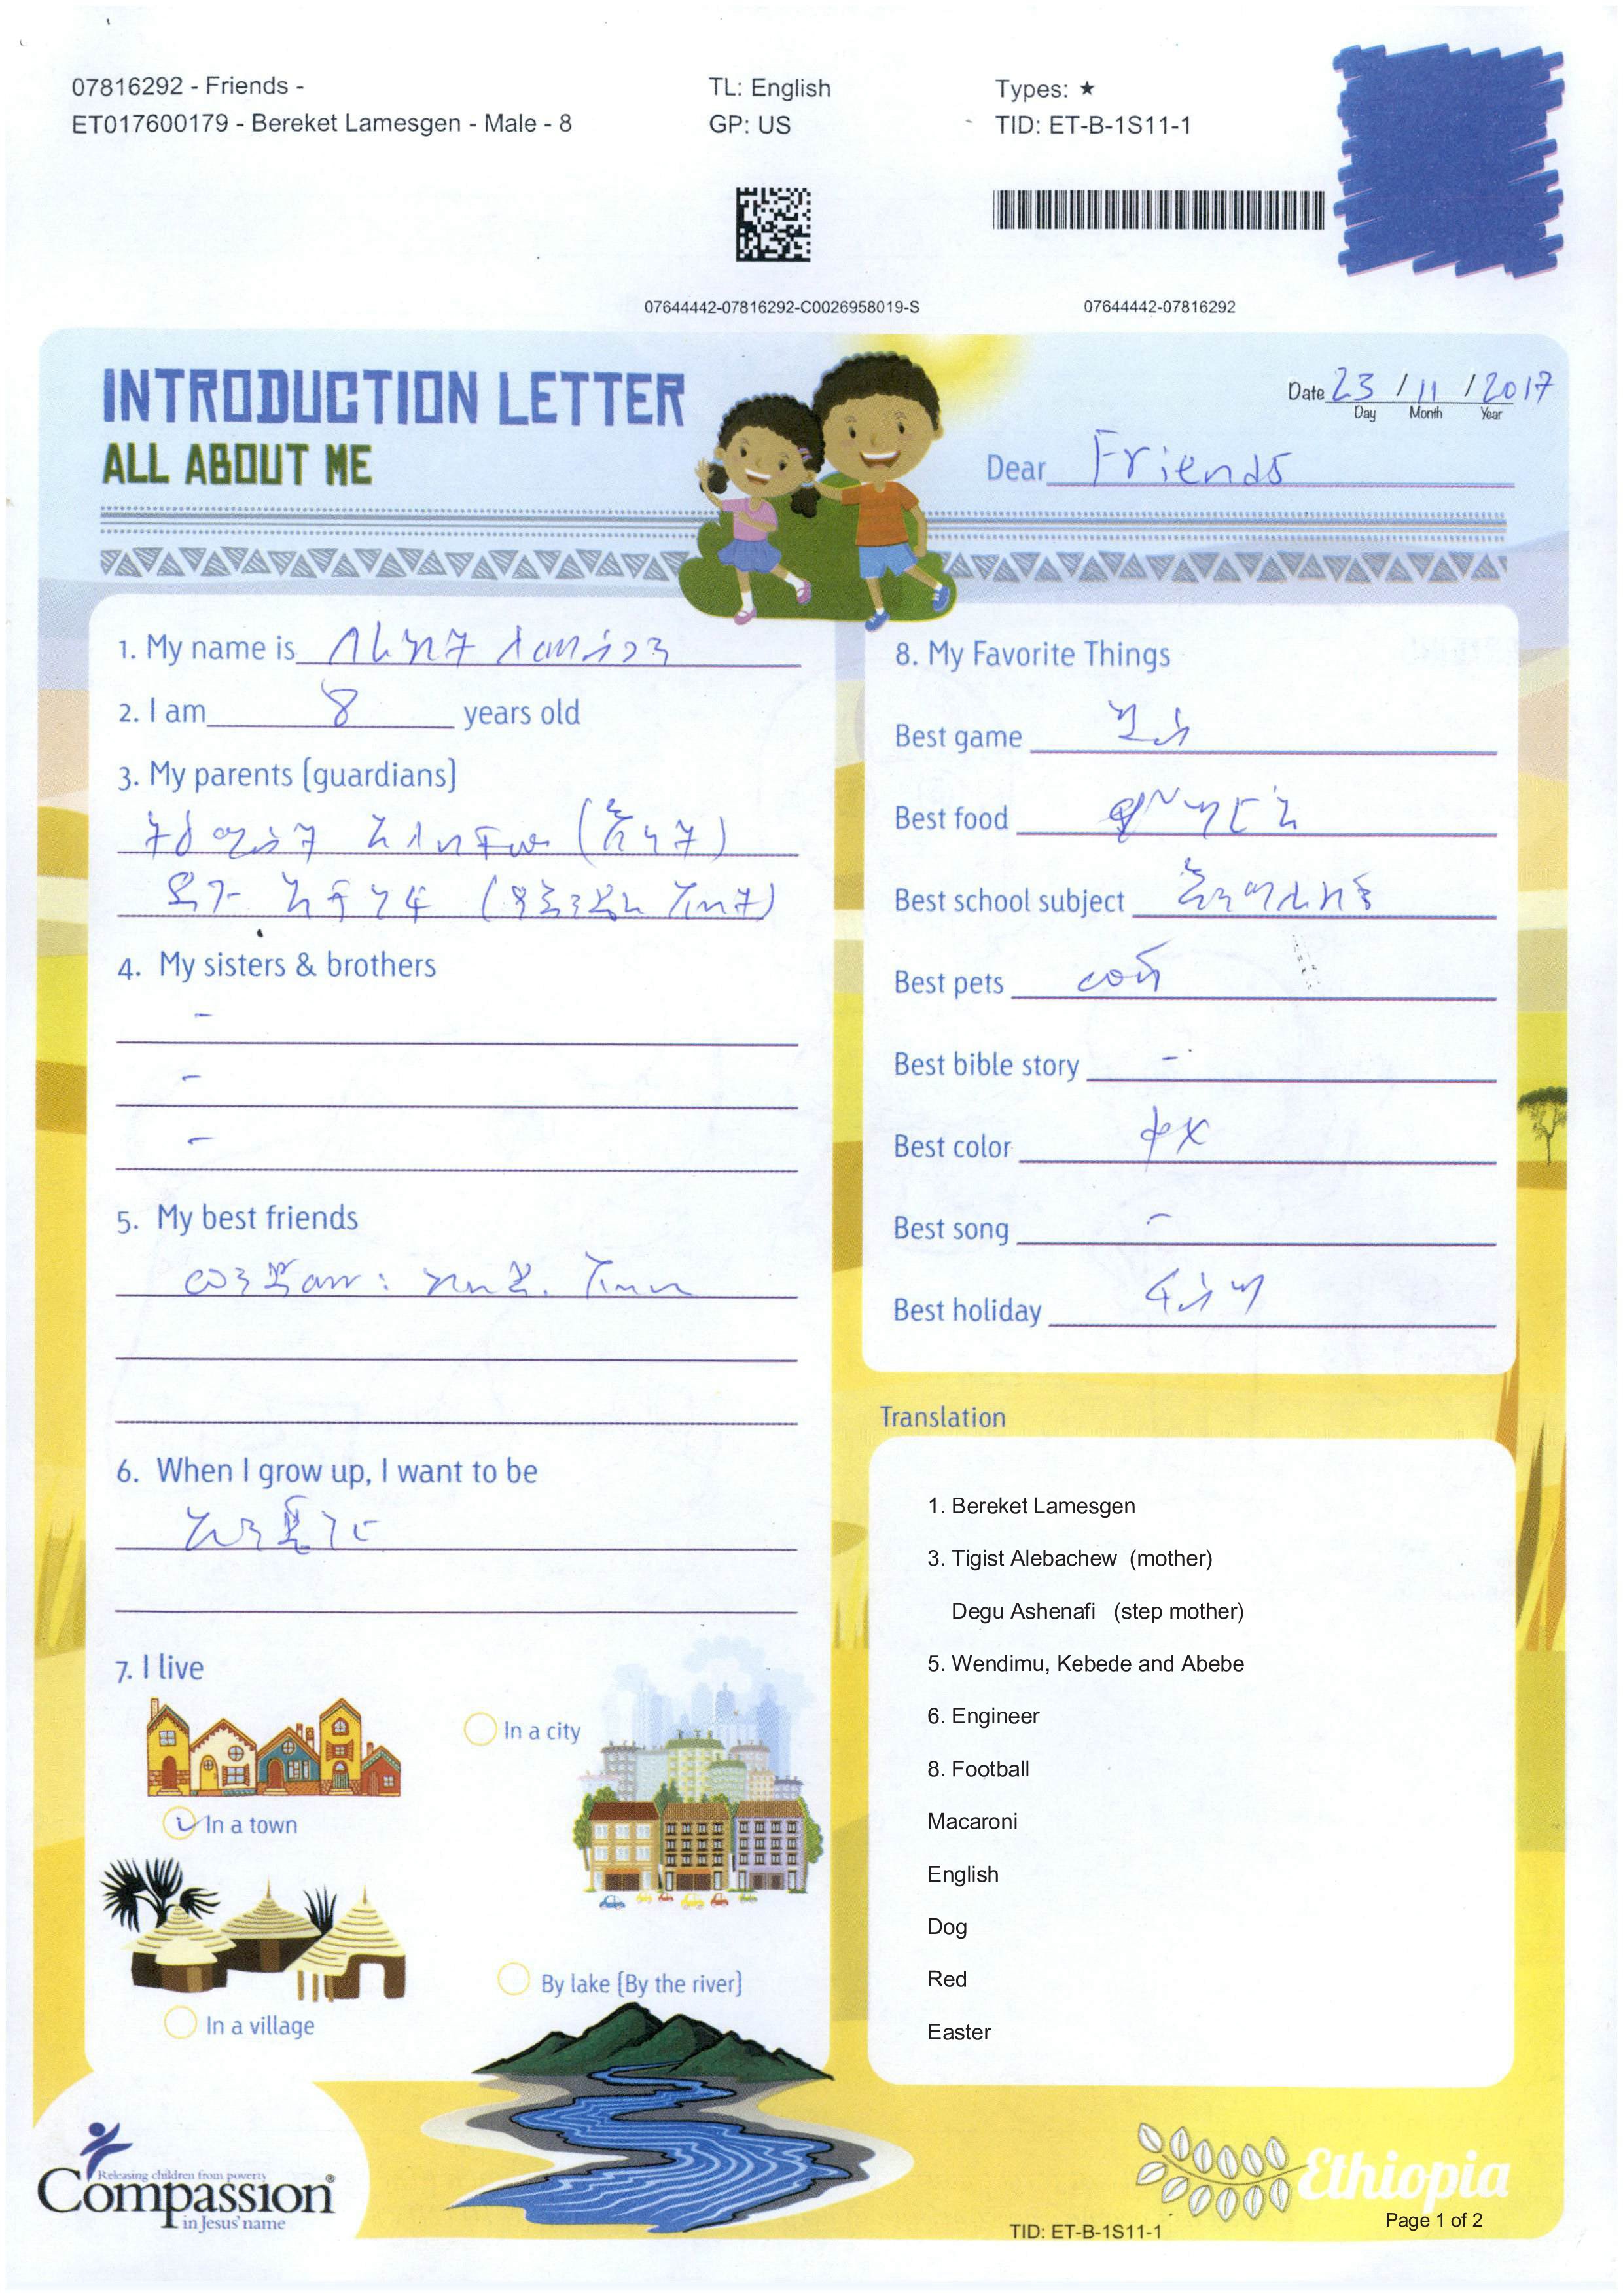 07816292 - Friends -
ET017600179 - Bereket Lamesgen - Male - 8
TL: English
GP: US
Types: ★
TID: ET-B-1S11-1
07644442-07816292-C0026958019-S
07644442-07816292
INTRODUCTION LETTER
ALL ABOUT ME
Date 23 / 11 / 2017
Day Month Year
Dear Friends
1. My name is በረከት ላመስገን
2. I am 8 years old
3. My parents (guardians)
ትዕግስት አለባቸው (እናት)
ደጉ አሸናፊ (የእንጀራ አባት)
4. My sisters & brothers
-
-
-
5. My best friends
ወንድሙ፡ ከበደ. አበበ
6. When I grow up, I want to be
ኢንጂነር
7. I live
In a town
In a city
In a village
By lake (By the river)
8. My Favorite Things
Best game ኳስ
Best food መኮሮኒ
Best school subject እንግሊዘኛ
Best pets ውሻ
Best bible story -
Best color ቀይ
Best song -
Best holiday ፋሲካ
Translation
1. Bereket Lamesgen
3. Tigist Alebachew (mother)
Degu Ashenafi (step mother)
5. Wendimu, Kebede and Abebe
6. Engineer
8. Football
Macaroni
English
Dog
Red
Easter
Releasing children from poverty
Compassion®
in Jesus' name
Ethiopia
Page 1 of 2
TID: ET-B-1S11-1